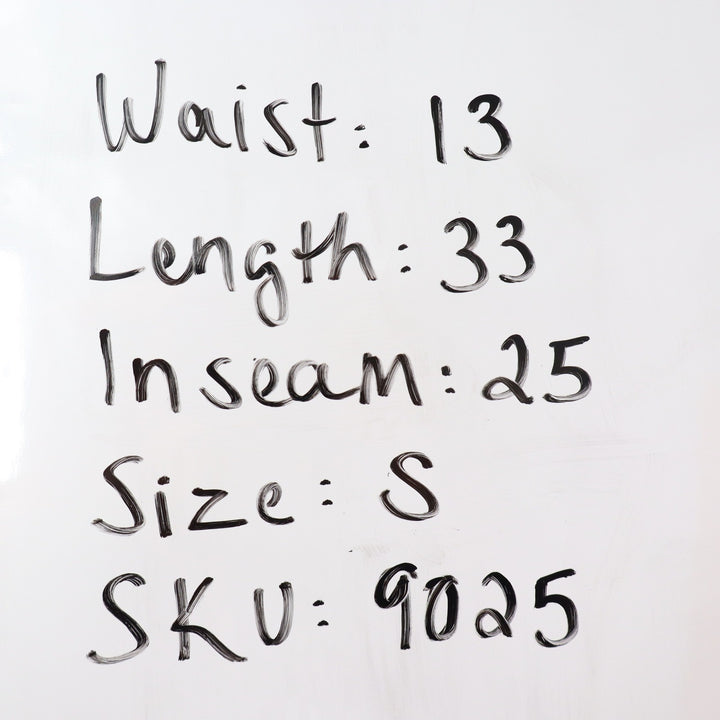 Waist: 13
Length: 33
Inseam: 25
Size: S
SKU: 9025